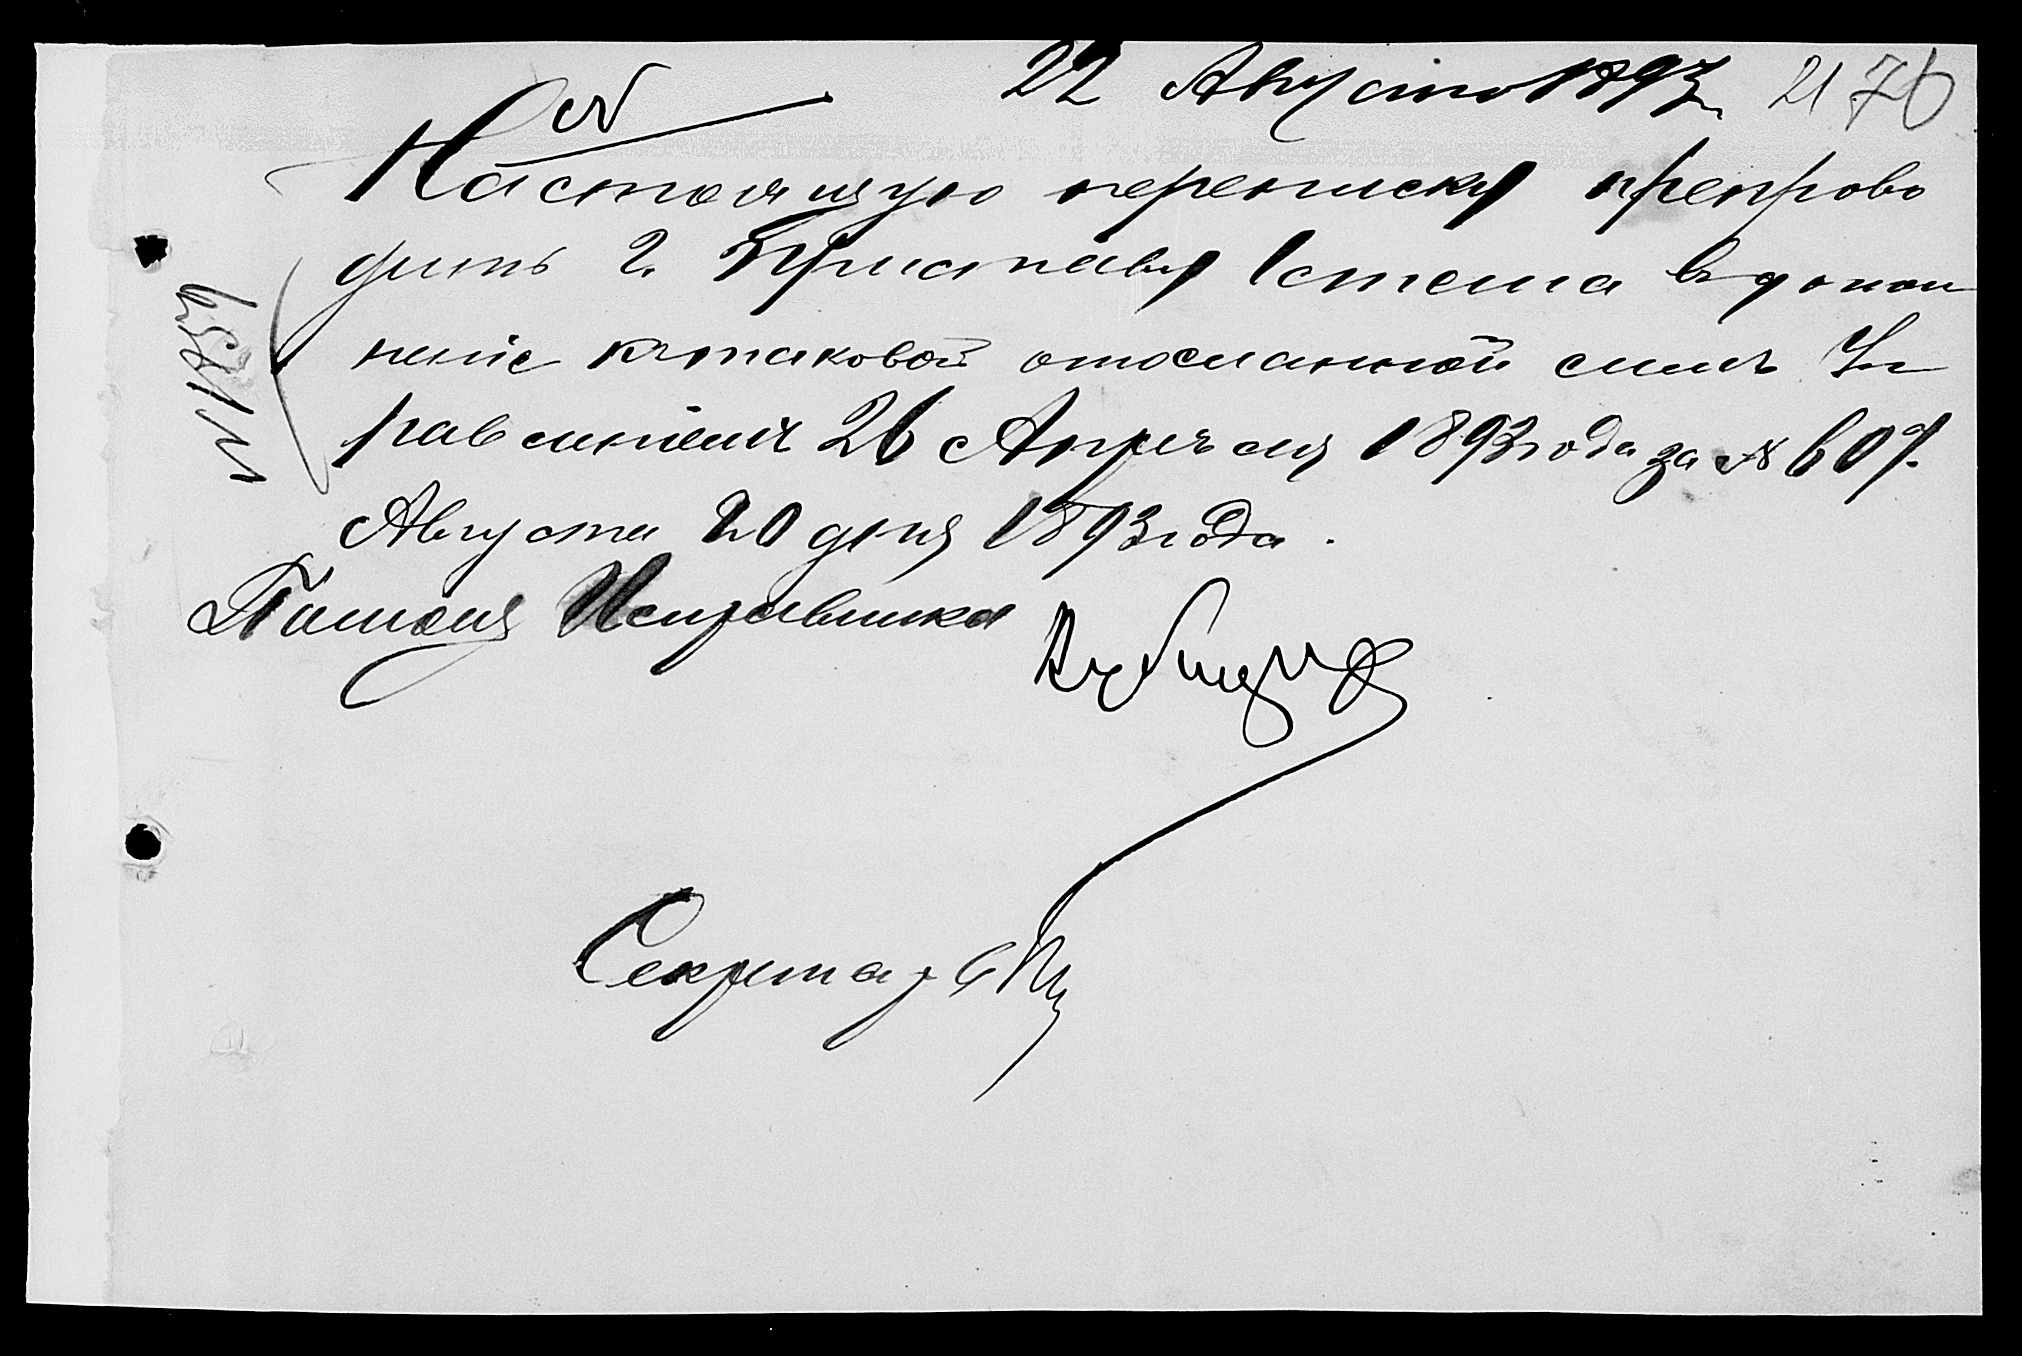 22 Августа 1893 г. 21 76
Настоящую переписку препрово
дить г. Приставу 1 стана въ допол
неніе къ таковой отосланной симъ Уп
равленіемъ 26 Апреля 1893 года за № 609.
Августа 20 дня 1893 года.
Помощ Исправника
Секретарь